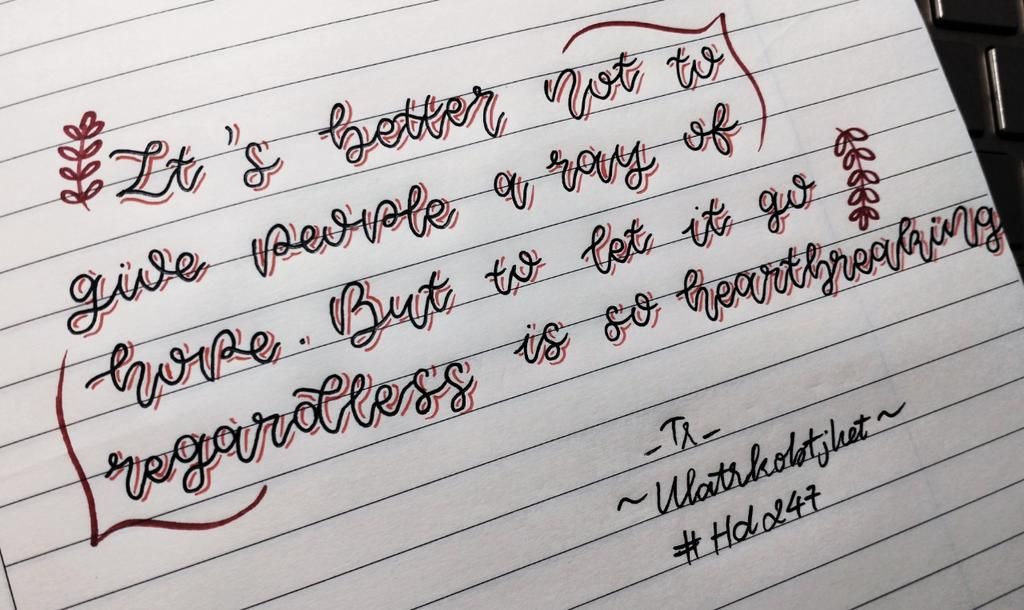 It's better not to
give people a ray of
hope. But to let it go
regardless is so heartbreaking
- Tr -
~ Ulatrkobtjhet ~
#Hd247